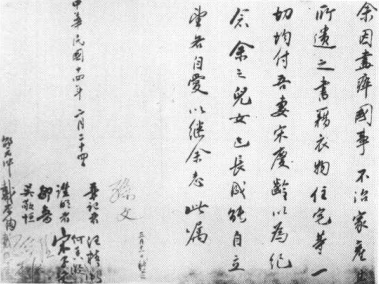 余因盡瘁國事不治家產其
所遺之書籍衣物住宅等一
切均付吾妻宋慶齡以為紀
念余之兒女已長成能自立
望各自愛以继余志此嘱
中華民國十四年二月二十四
孫文
三月十一日
筆記者 汪精衛
證明者 宋子文
吳敬恒